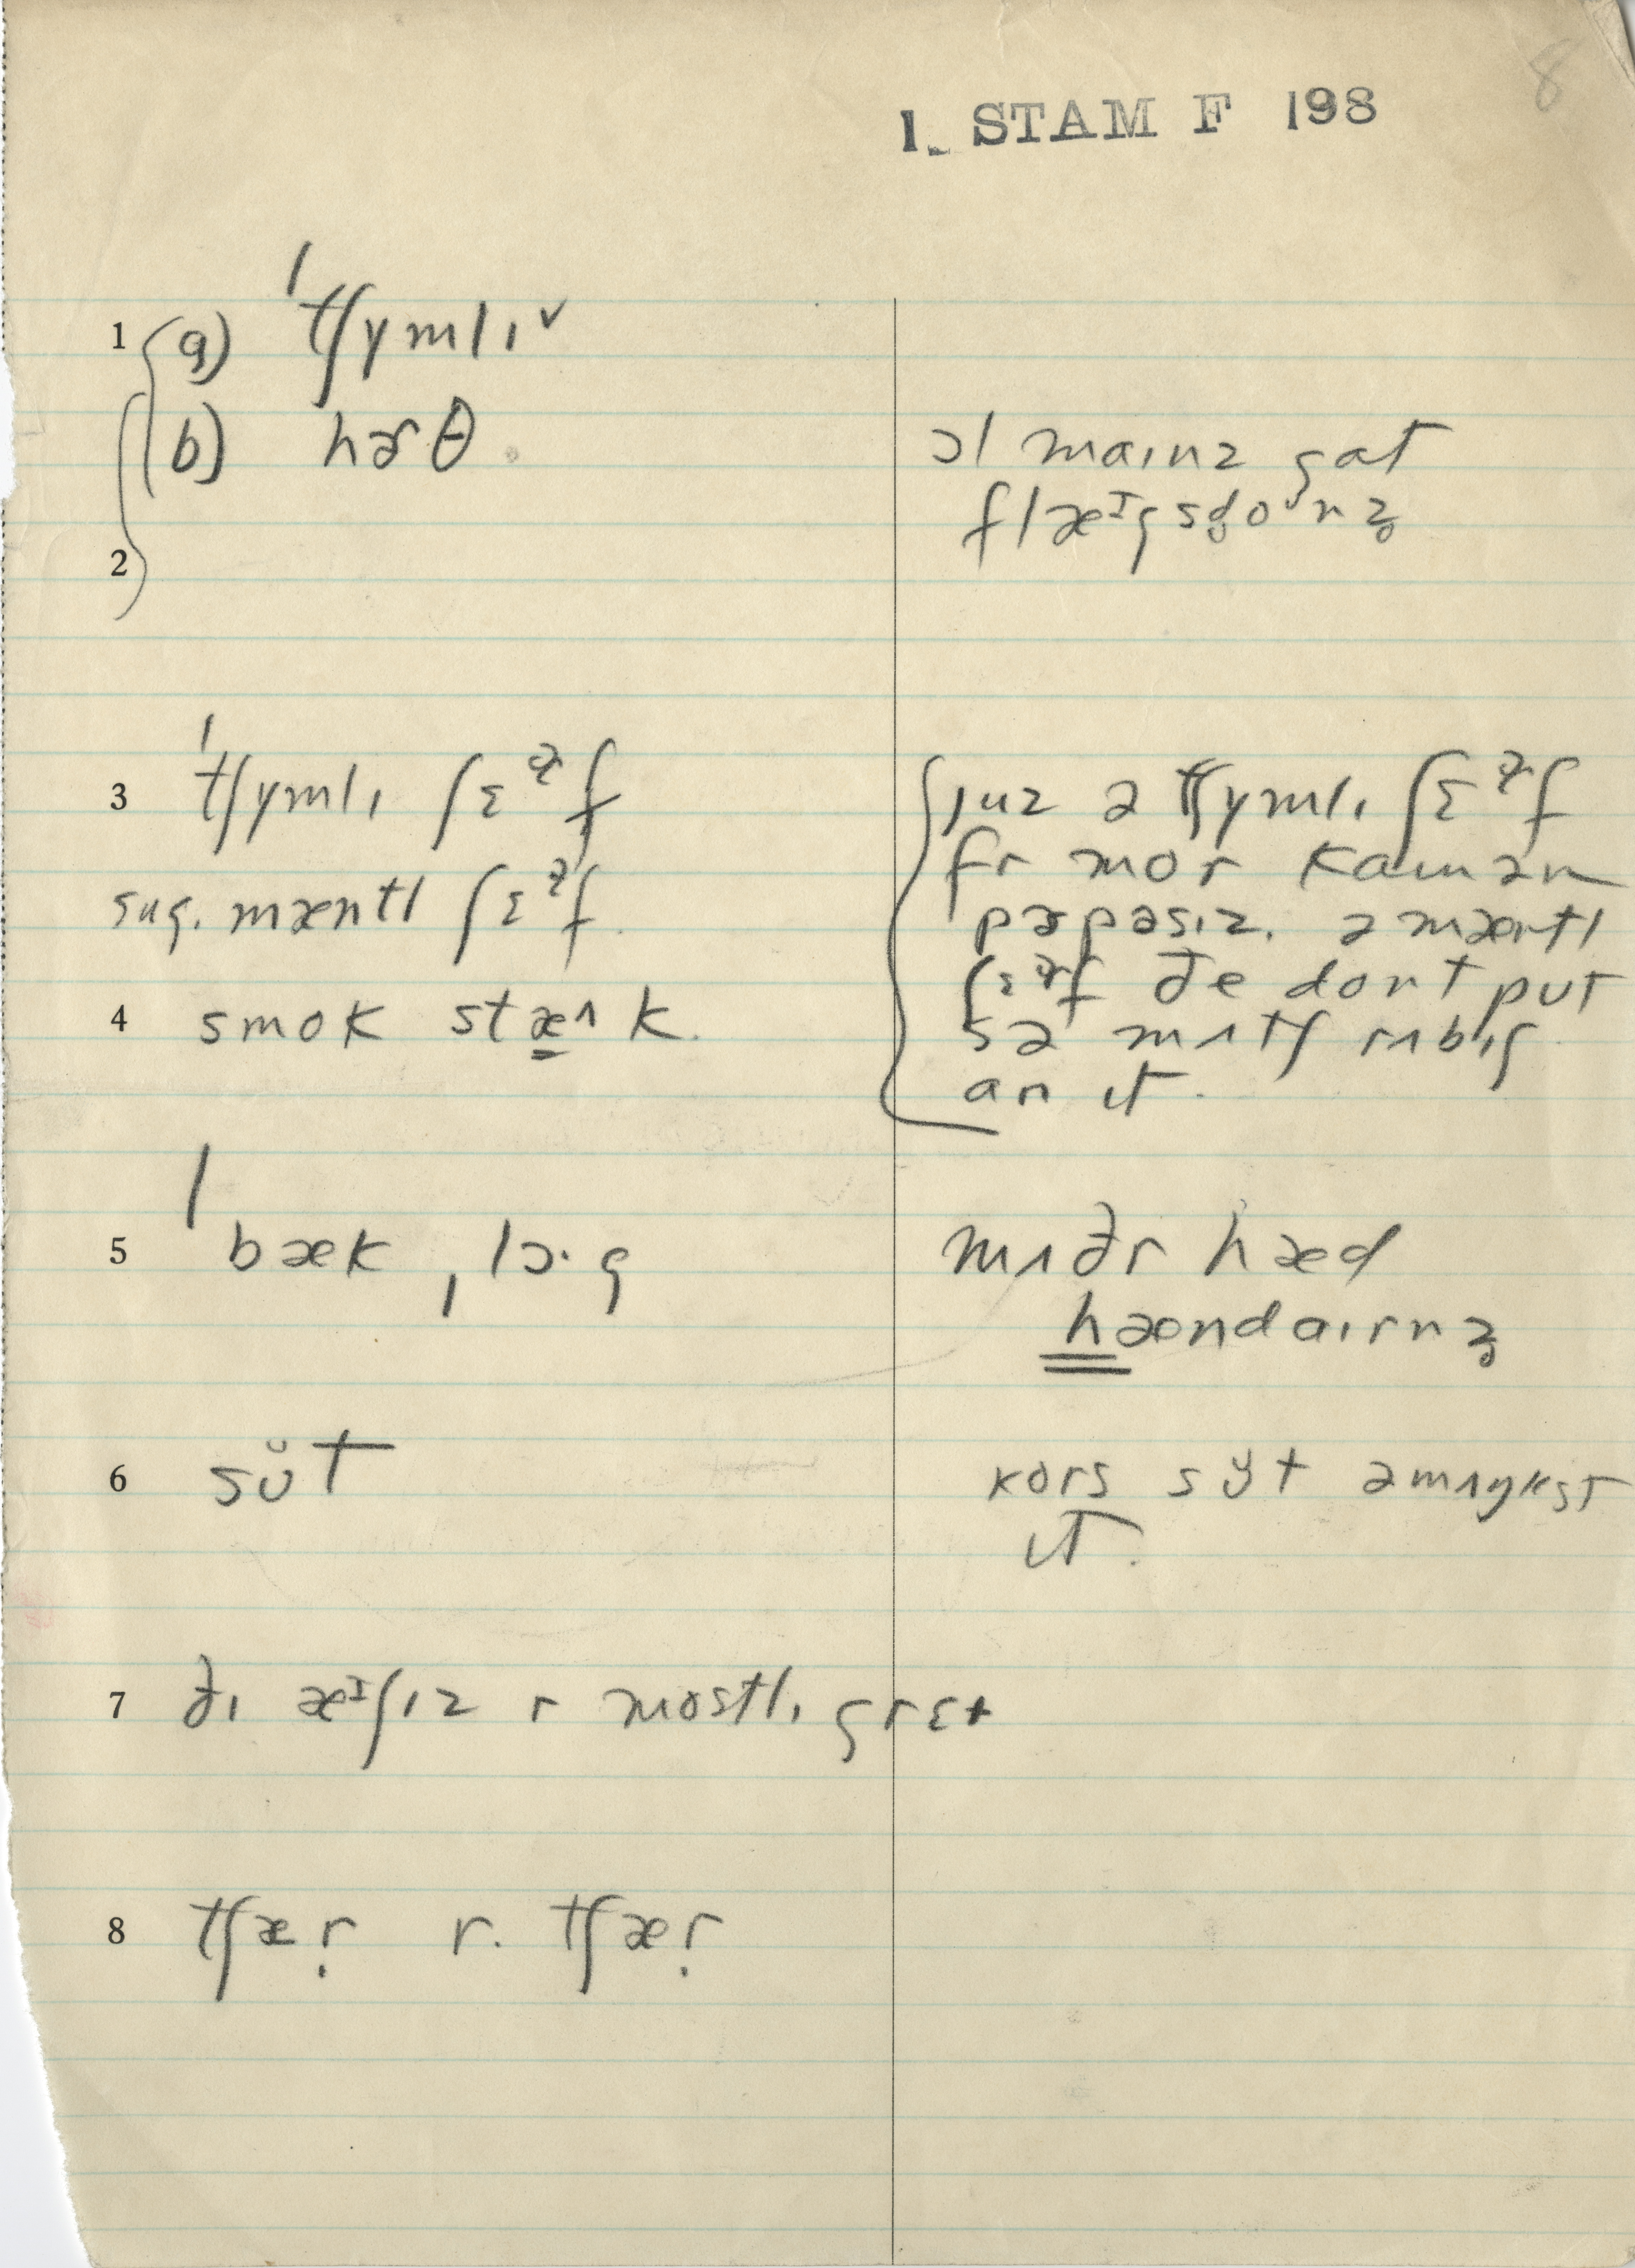 8
1. STAM F 198
1 (a) ˈtʃymlɪ ✓
(b) hɚθ.
ɔl maɪnz gat
flæᶦgsd̥oᶷnz̥
2
3 ˈtʃymlɪ ʃɛᵊ˞f
sug. mæntl ʃɛᵊ˞f.
juz ə tʃymlɪ ʃɛᵊ˞f
fr mor kamən
pɚpəsɪz. ə mæntl
ʃɛᵊ˞f ðe dont put
sə mʌtʃ rʌbɪʃ
an ɪt.
4 smok stæᶺk.
5 ˈbæk ˌlɔ·g
mʌðr hæd
hændaɪrnz̥
6 sŭt
kors sy̆t
ɪt.
7 ðɪ æᶦʃɪz r mostlɪ gret
8 tʃæṛ r. tʃæṛ